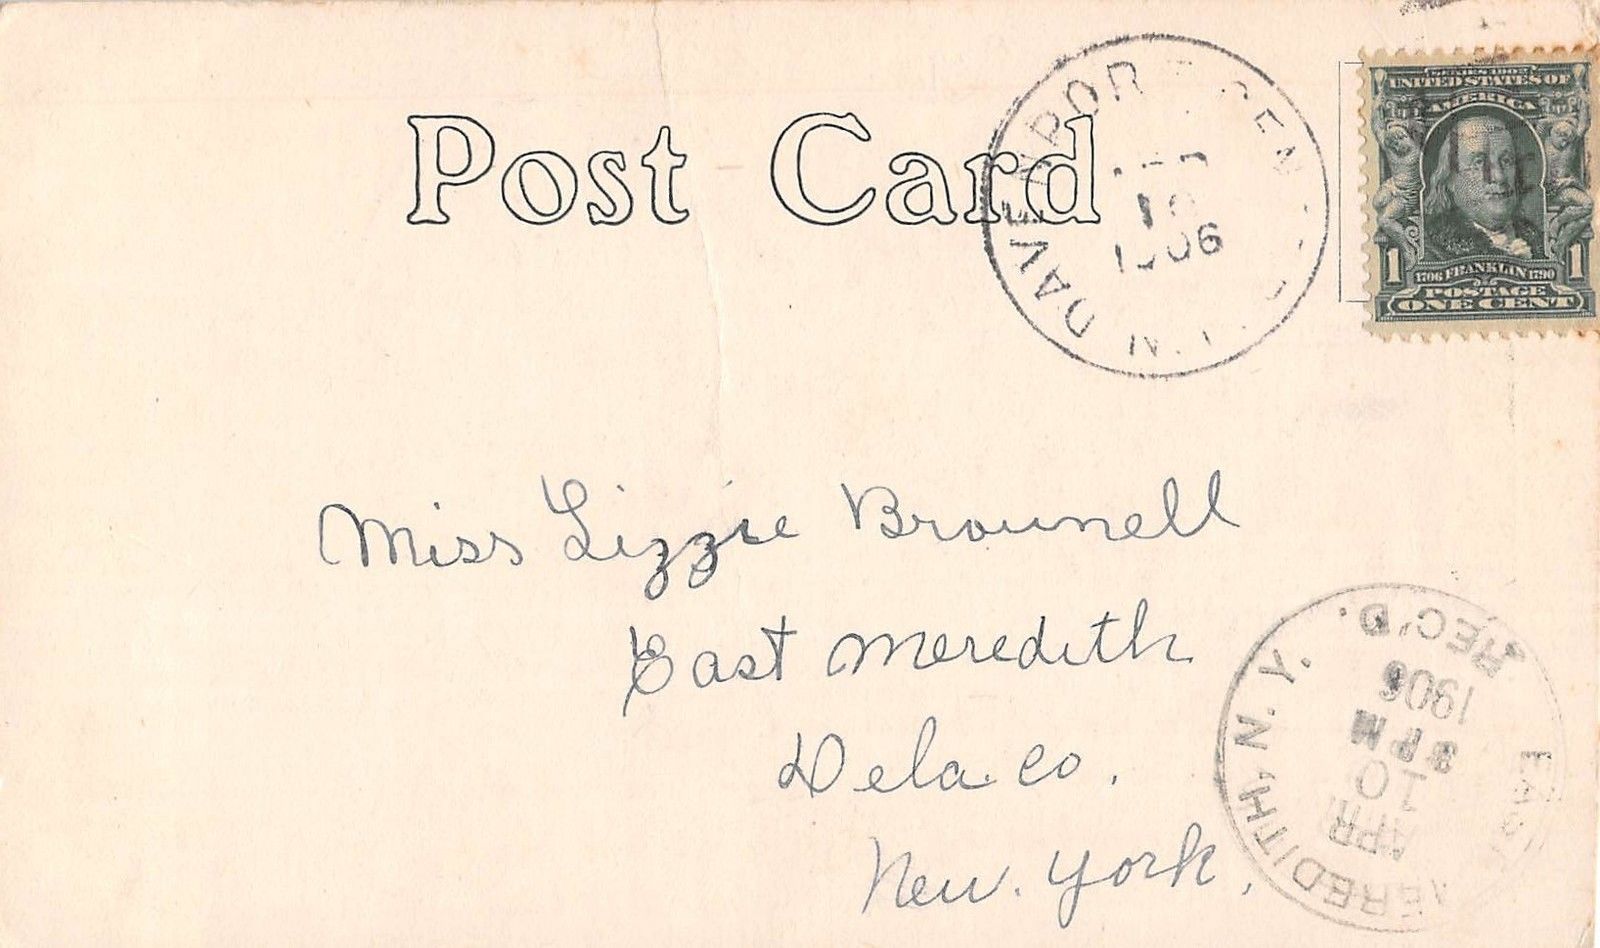 Post Card
DAVENPORT CEN
10
1906
SERIES 1902
UNITED STATES OF
AMERICA
1 1706 FRANKLIN 1790 1
POSTAGE
ONE CENT
Miss Lizzie Brownell
East Meredith
Dela. Co.
New York.
EAST MEREDITH, N.Y. REC'D.
APR
10
3 PM
1906